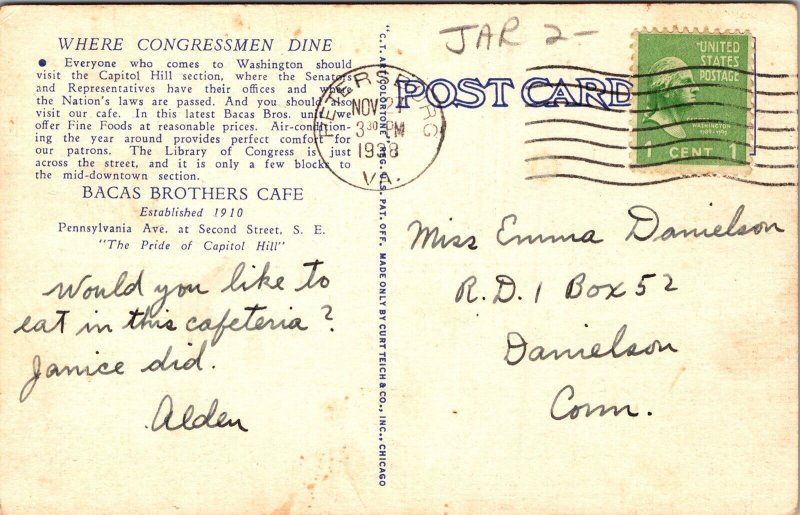 JAR 2-
WHERE CONGRESSMEN DINE
• Everyone who comes to Washington should
visit the Capitol Hill section, where the Senators
and Representatives have their offices and where
the Nation's laws are passed. And you should also
visit our cafe. In this latest Bacas Bros. unit we
offer Fine Foods at reasonable prices. Air-condition-
ing the year around provides perfect comfort for
our patrons. The Library of Congress is just
across the street, and it is only a few blocks to
the mid-downtown section.
BACAS BROTHERS CAFE
Established 1910
Pennsylvania Ave. at Second Street, S. E.
"The Pride of Capitol Hill"
Would you like to
eat in this cafeteria?
Janice did.
Alden
"C.T. ART-COLORTONE" REG. U.S. PAT. OFF. MADE ONLY BY CURT TEICH & CO., INC., CHICAGO
POST CARD
PETERSBURG
NOV
3 30 PM
1938
VA.
UNITED
STATES
POSTAGE
WASHINGTON
1 CENT 1
Miss Emma Danielson
R.D. 1 Box 52
Danielson
Conn.